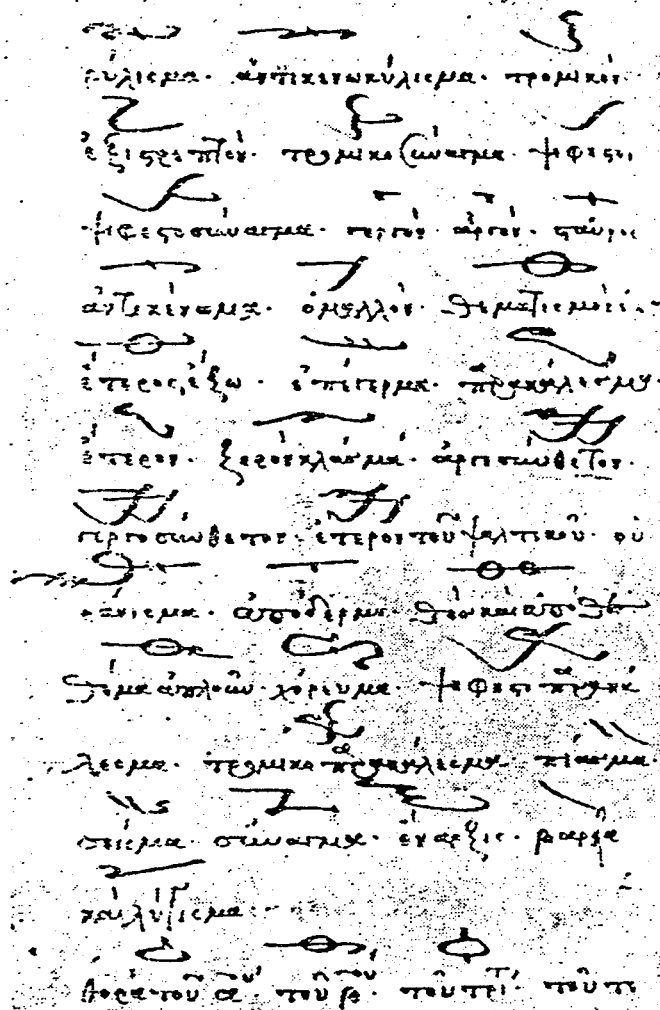 κύλισμα· ἀντικενωκύλισμα· τρομικόν·
ἐξτρεπτόν· τρομικοσύναγμα· ψηφιστὸν
ψηφιστοσύναγμα· γοργόν· ἀργόν· σταυρὸς
ἀντικένωμα· ὁμαλόν· θεματισμὸς
ἕτερος ἔξω· ἐπέγερμα· παρακάλεσμα·
ἕτερον· ξηρὸν κλάσμα· ἀργοσύνθετον·
γοργοσύνθετον· ἕτερον τοῦ ψαλτικοῦ· οὐ
ράνισμα· ἀπόδερμα· θὲς καὶ ἀπόθες
θέμα ἁπλοῦν· χόρευμα· ψηφιστοπαρακά
λεσμα· τρομικοπαρακάλεσμα· πίασμα·
σεῖσμα· σύναγμα· ἔναρξις· βαρεῖα
καὶ λύγισμα·
τοῦ α· τοῦ β· τοῦ τρί· τοῦ τε